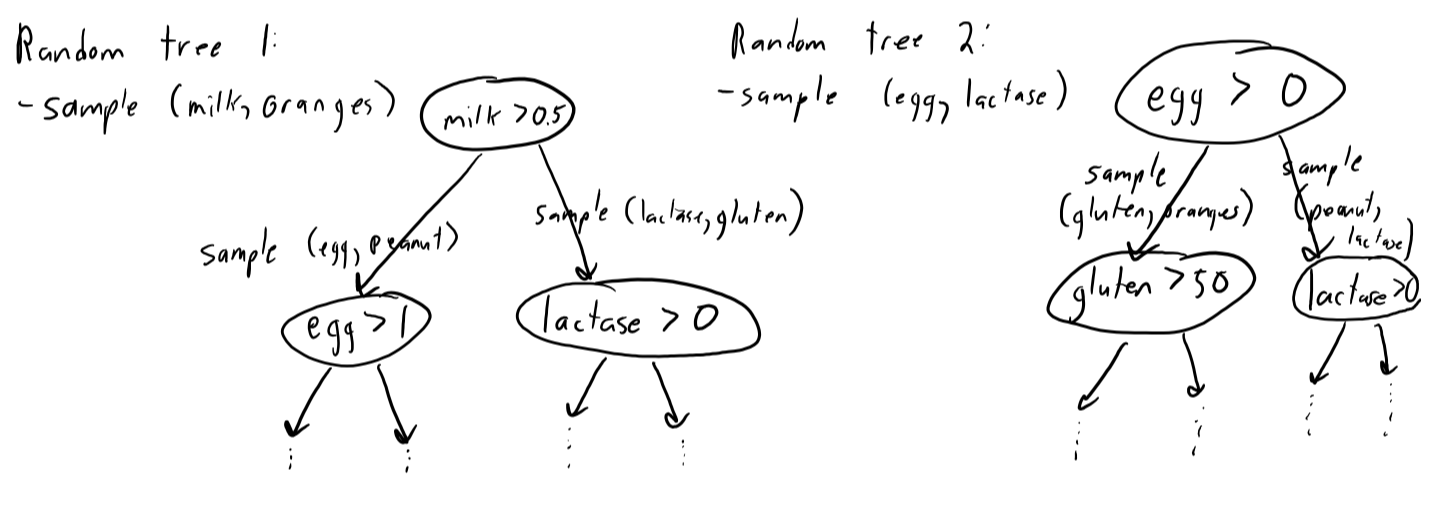 Random tree 1:
- sample (milk, oranges)
milk > 0.5
sample (egg, peanut)
sample (lactase, gluten)
egg > 1
lactase > 0
Random tree 2:
- sample (egg, lactase)
egg > 0
sample
(gluten, oranges)
sample
(peanut,
lactase)
gluten > 50
lactase > 0